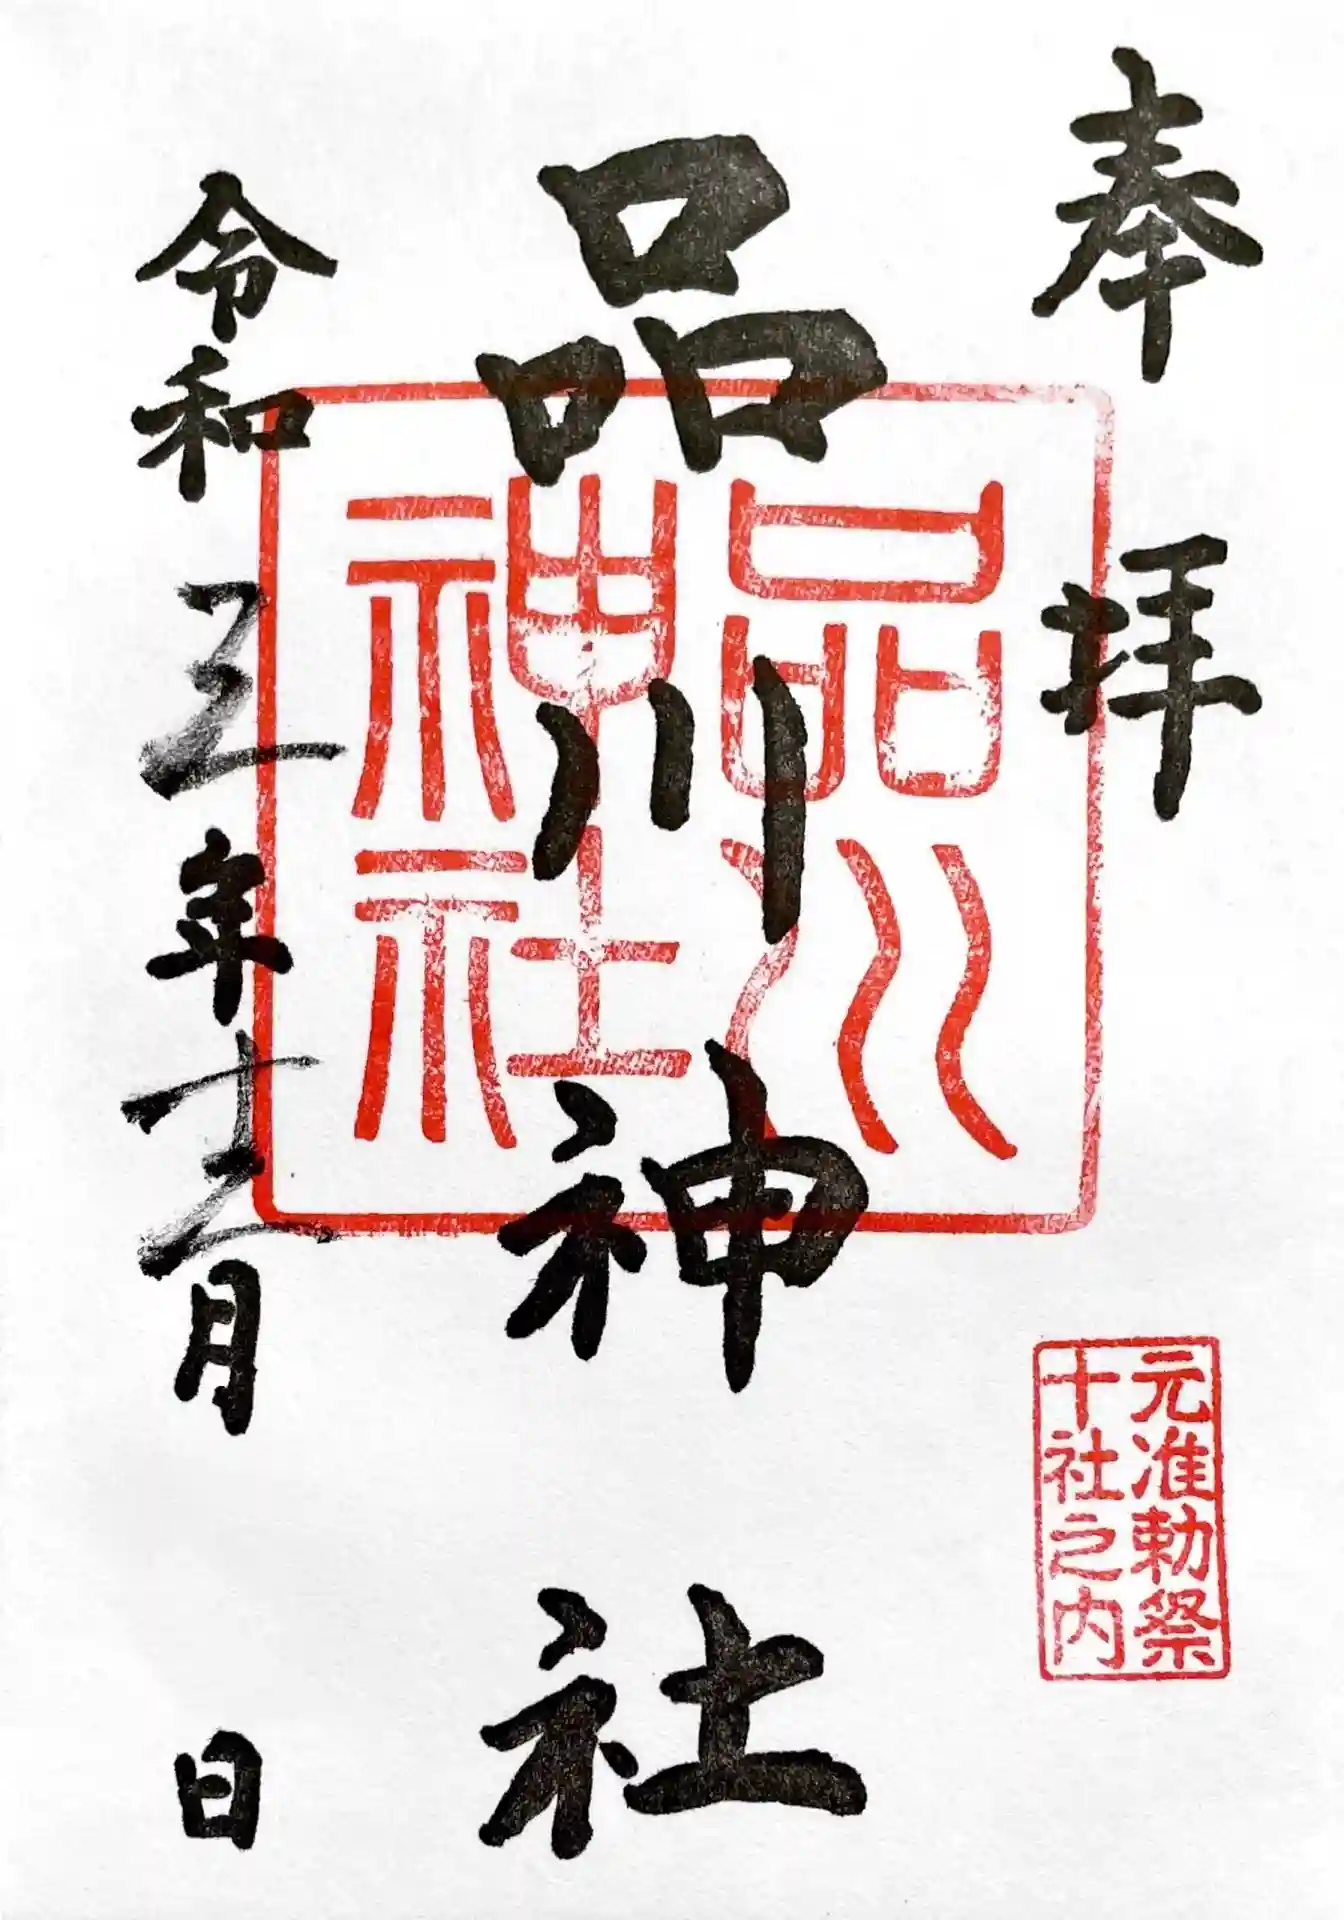 奉拝
元准勅祭
十社之内
品川神社
品川
神社
令和三年十二月 日